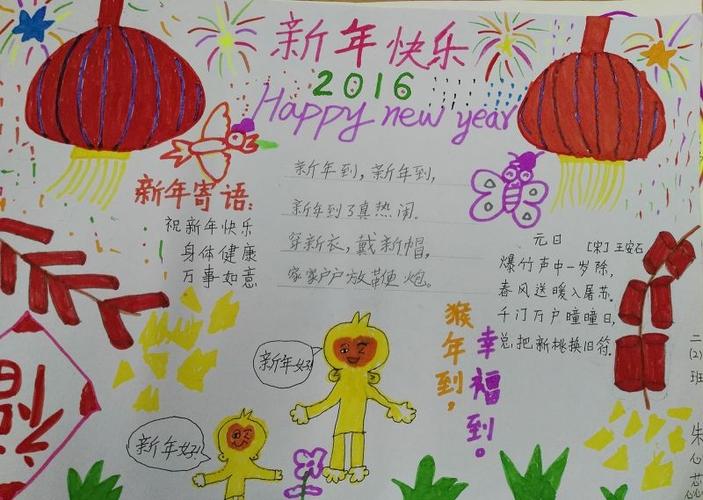 新年快乐
2016
Happy new year
新年寄语:
祝新年快乐
身体健康
万事如意
新年到，新年到，
新年到了真热闹。
穿新衣，戴新帽，
家家户户放鞭炮。
元日
[宋]王安石
爆竹声中一岁除，
春风送暖入屠苏。
千门万户曈曈日，
总把新桃换旧符。
猴年到，
幸福到。
新年好!
新年好!
福
二(2)班
朱心蕊